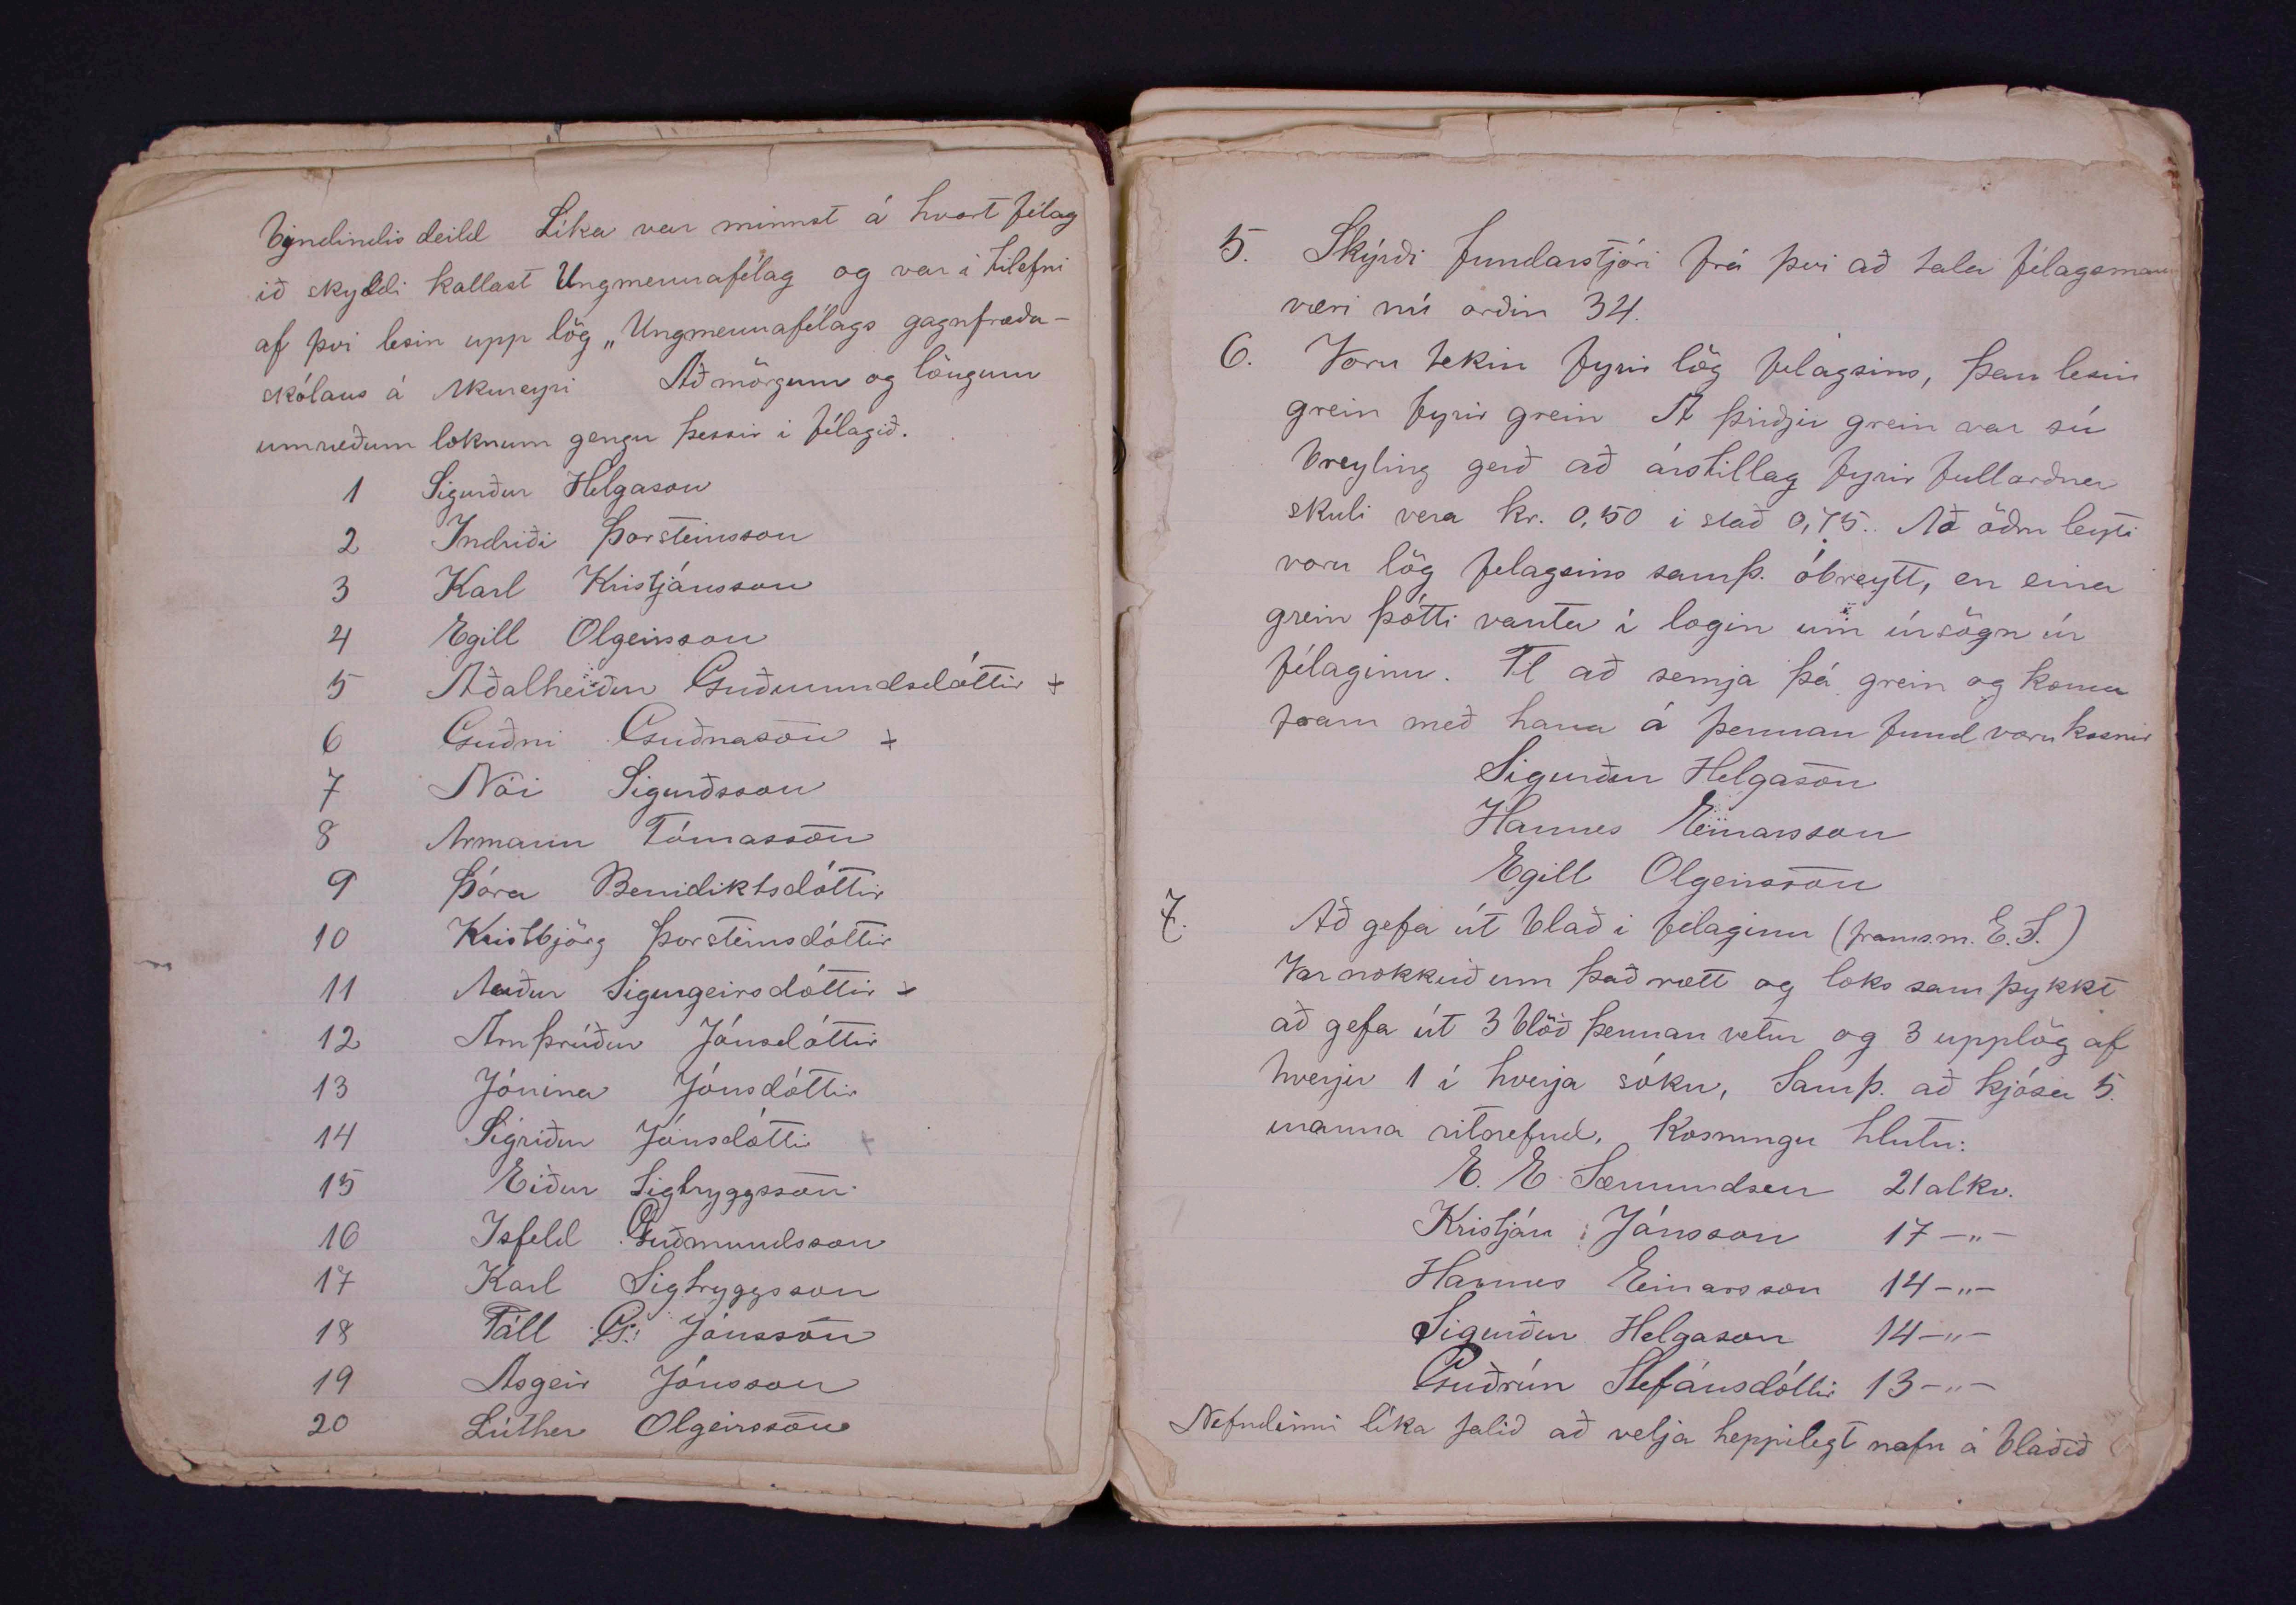 Byndindis deild Líka var minnst á hvort félag
ið skyldi kallast Ungmennafélag og var i tilefni
af því lesin upp lög „Ungmennafélags gagnfræða-
skólans á Akureyri Að mörgum og löngum
umræðum loknum gengu þessir i félagið.
1 Sigurður Helgason
2 Indriði Þorsteinsson
3 Karl Kristjánsson
4 Egill Olgeirsson
5 Aðalheiður Guðmundsdóttir +
6 Guðni Guðnason +
7 Nói Sigurðsson
8 Armann Tómasson
9 Þóra Benidiktsdóttir
10 Kristbjörg Þorsteinsdóttir
11 Auður Sigurgeirsdóttir +
12 Arnþrúður Jónsdóttir
13 Jónina Jónsdóttir
14 Sigriður Jónsdóttir +
15 Eiður Sigtryggsson
16 Isfeld Guðmundsson
17 Karl Sigtryggsson
18 Páll G. Jónsson
19 Asgeir Jónsson
20 Lúther Olgeirsson
5. Skýrði fundarstjóri frá þvi að tala félagsmann
væri nú orðin 34.
6. Voru tekin fyrir lög felagsins, Þau lesin
grein fyrir grein Á þriðju grein var sú
breyting gerð að árstillag fyrir fullorðna
skuli vera kr. 0,50 i stað 0,75. Að öðru leyti
voru lög felagsins samþ. óbreytt, en eina
grein þótti vanta i login um úrsögn úr
félaginu. Til að semja þá grein og koma
fram með hana á þennan fund voru kosnir
Sigurður Helgason
Hannes Einarsson
Egill Olgeirsson
7. Að gefa út blað i félaginu (framsm. E. S.)
Var nokkuð um það rætt og loks samþykkt
að gefa út 3 blöð þennan vetur og 3 upplög af
hverju 1 i hverja sókn, Samþ. að kjósa 5.
manna ritnefnd. Kosningu hlutu:
E. E. Sæmundsen 21 atkv.
Kristján Jónsson 17 -„-
Hannes Einarsson 14 -„-
Sigurður Helgason 14 -„-
Guðrún Stefánsdóttir 13 -„-
Nefndinni lika falið að velja heppilegt nafn á blaðið